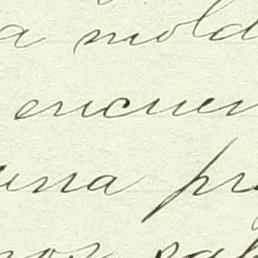 a mold
encuen
una pr